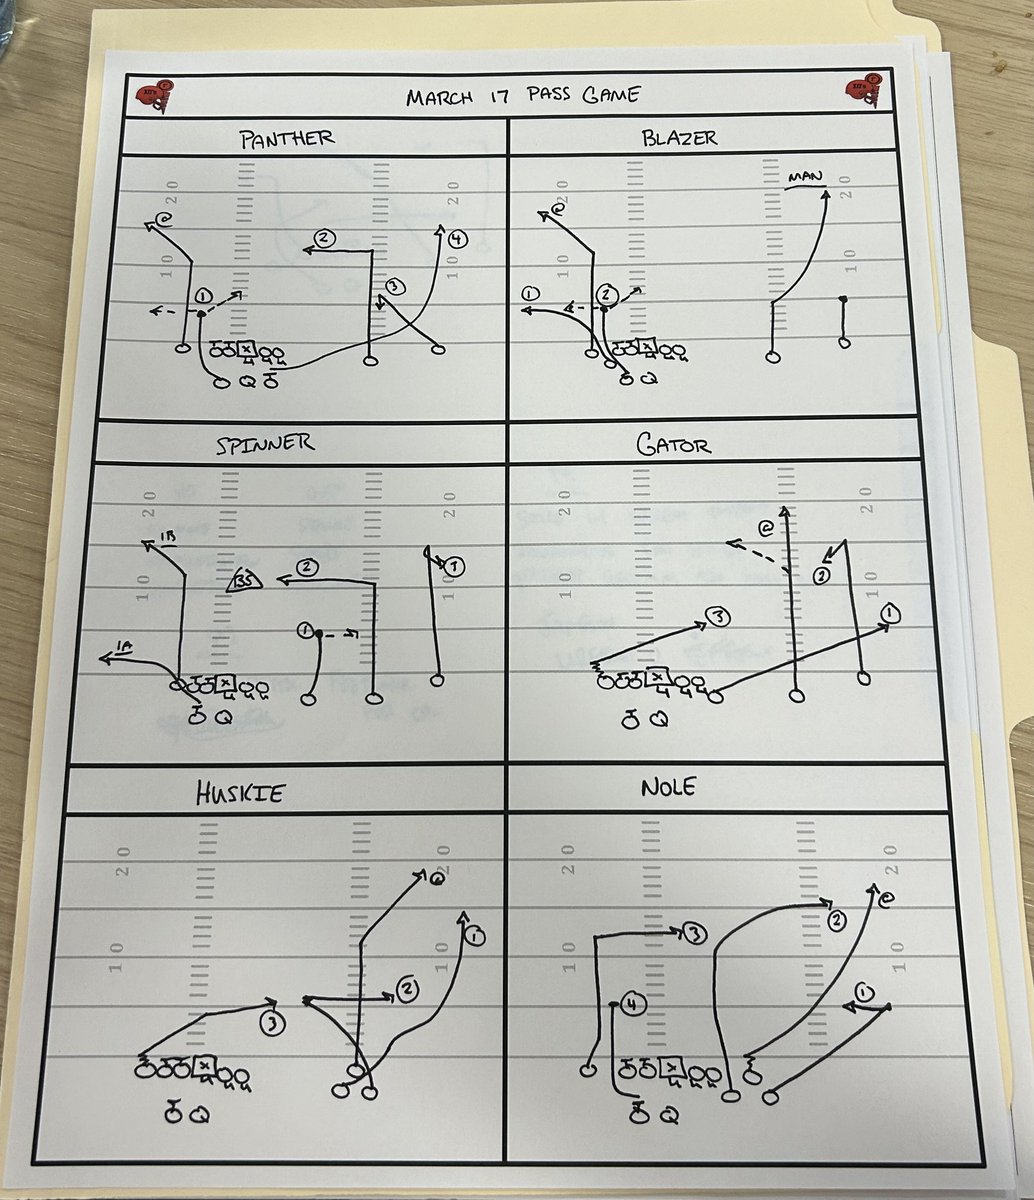 MARCH 17 PASS GAME
PANTHER
BLAZER
20
20
@
2
4
10
10
1
3
X
Q
20
MAN
20
@
10
10
1
2
X
Q
SPINNER
GATOR
20
20
1B
BS
2
1
10
10
1
1A
X
Q
20
20
@
2
10
10
3
1
X
Q
HUSKIE
NOLE
20
20
@
1
10
10
2
3
X
Q
20
20
@
2
3
10
10
4
1
X
Q